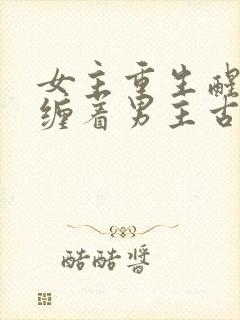 女主重生醒
缠着男主古
酷酷酱